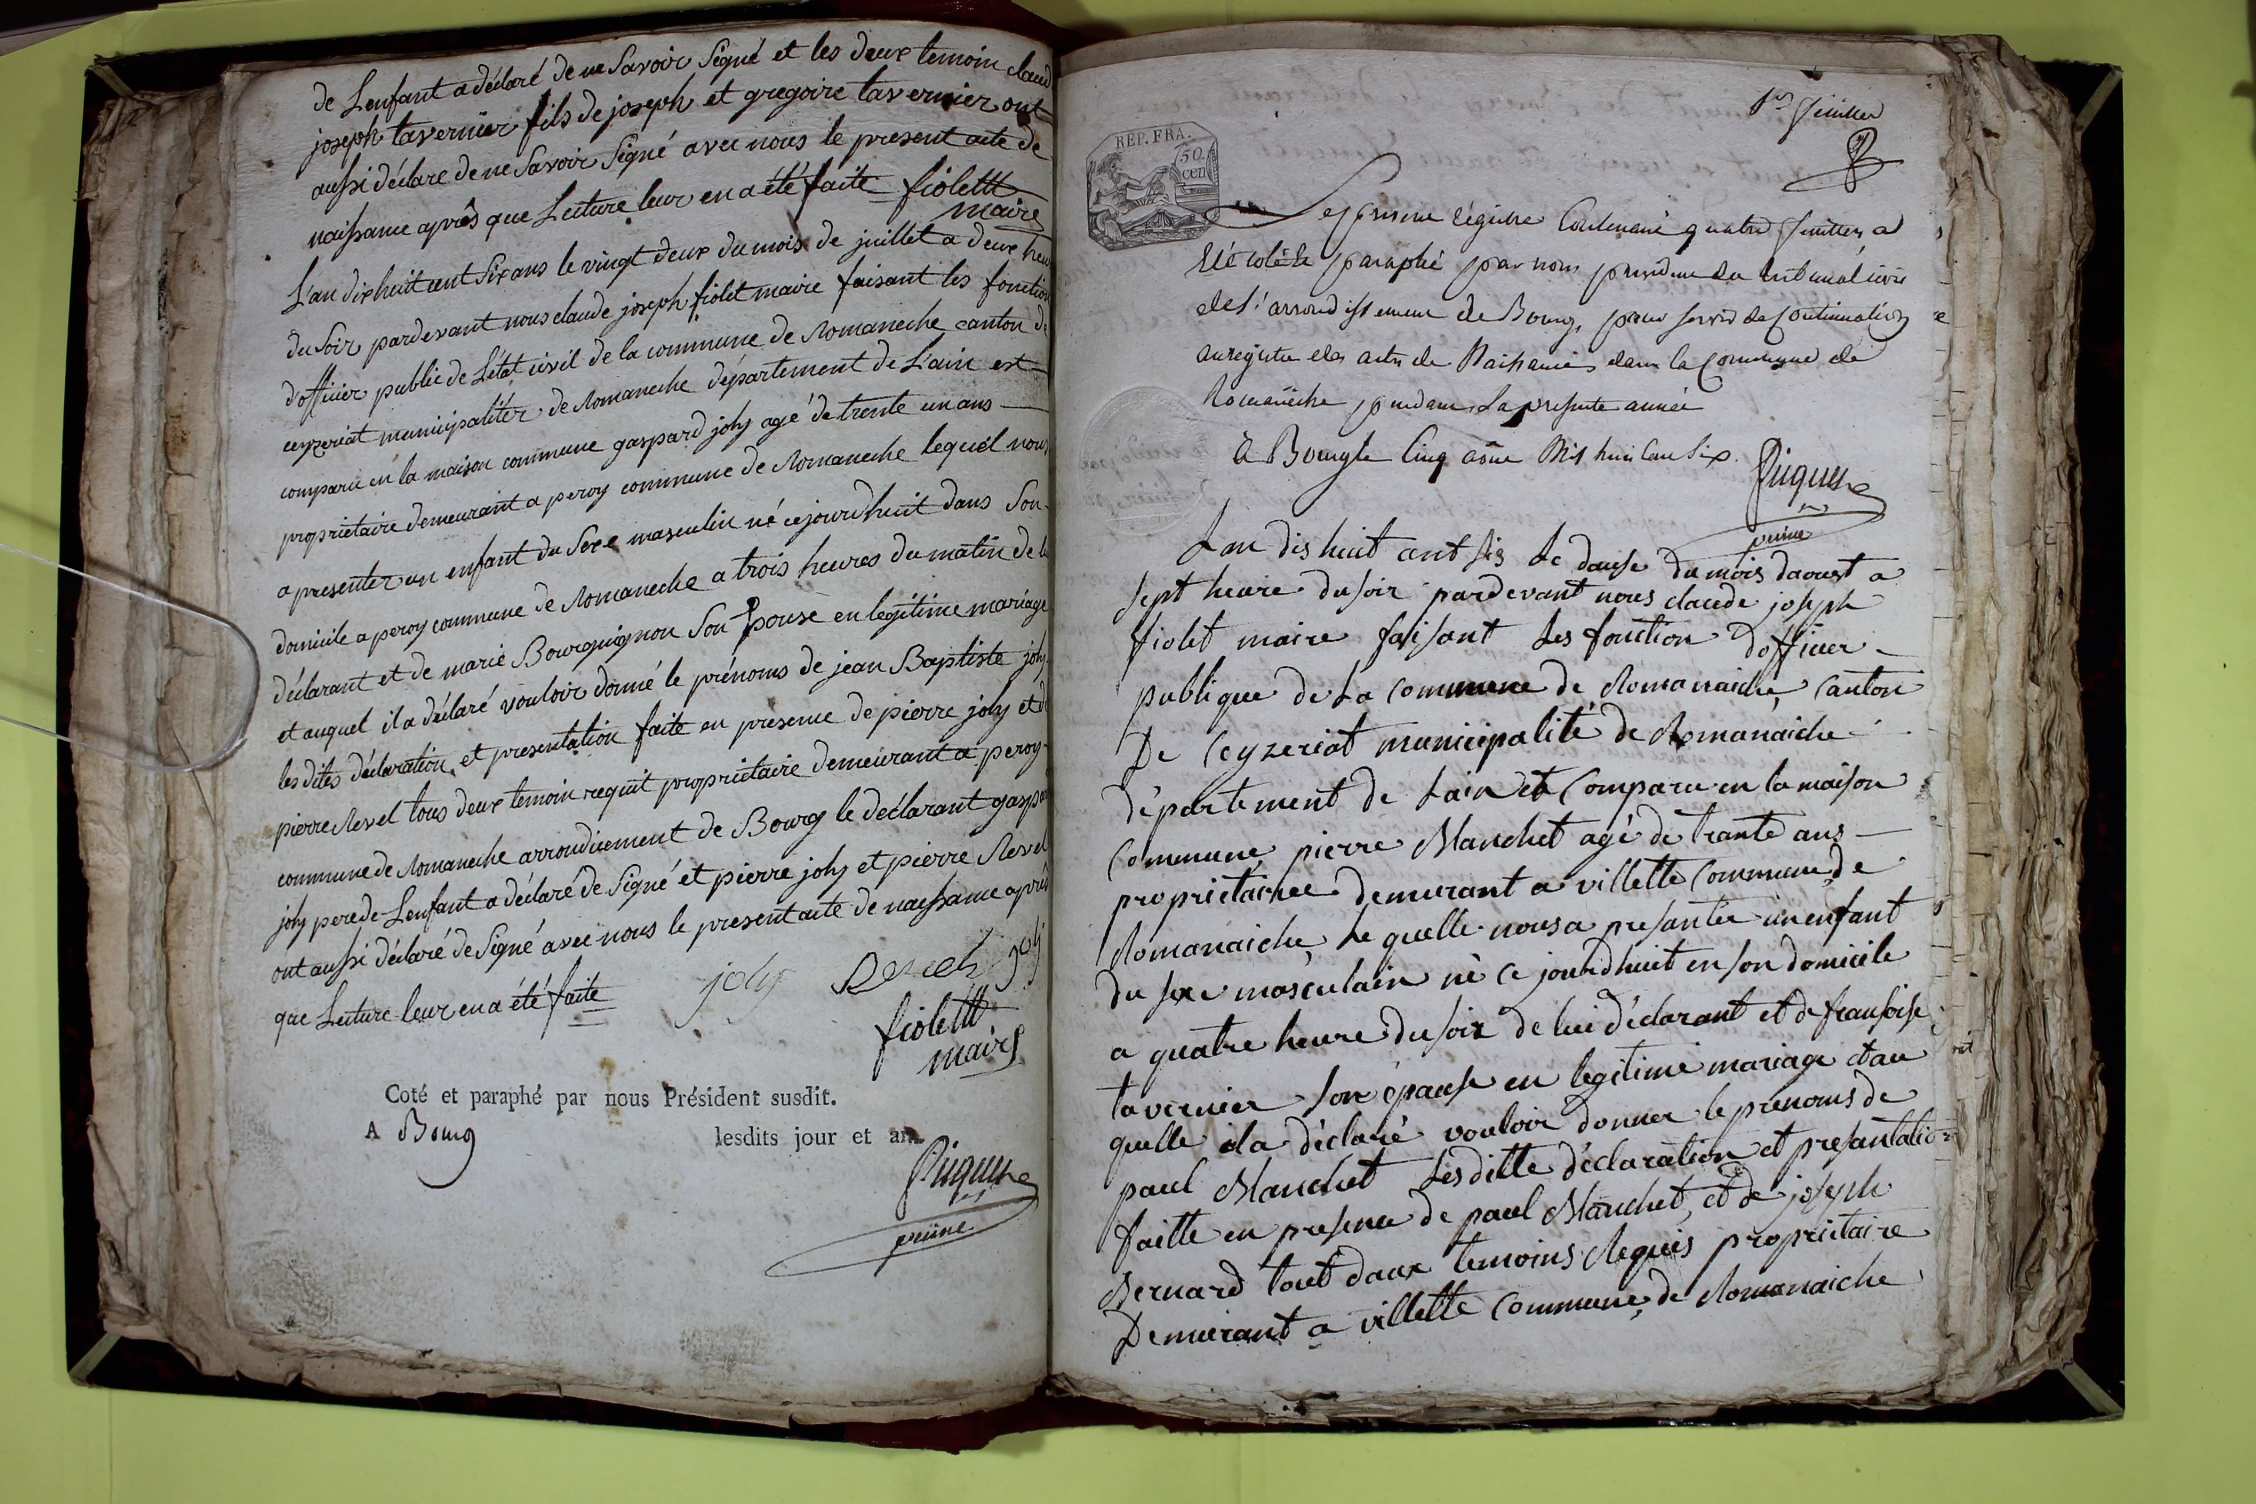 de Lenfant a déclaré de ne Savoir Signé et les deux temoin claud
joseph tavernier fils de joseph et gregoire tavernier ont
aussi déclare de ne Savoir Signé avec nous le present acte de
naissance aprês que Lecture leur en a été faite fiolettt
maire
L'an dix huit cent Six ans le vingt deux du mois de juillet a deux heu
du Soir pardevant nous claude joseph fiolet maire faisant les fonction
d'officier public de L'état civil de la commune de Romaneche canton de
ceyzeriat municipalitér de Romaneche département de L'ain est
comparu en la maison commune gaspard joly agé de trente un ans
propriétaire demeurant a peroy commune de Romaneche lequel nous
a presenter un enfant du Sexe masculin né cejourdhuit dans Son
domicile a peroy commune de Romaneche a trois heures du matin de lu
déclarant et de marie Bourguignon Son Epouse en legitime mariage
et auquel il a déclaré vouloir donné le prénoms de jean Baptiste joly
les dites déclaration et presentation faite en presence de pierre joly et de
pierre Revel tous deux temoin requit propriétaire demeurant a peroy
commune de Romaneche arrondicement de Bourg le déclarant gaspar
joly pere de Lenfant a déclaré de Signé et pierre joly et pierre Revel
ont aussi déclaré de Signé avec nous le present acte de naissance après
que Lecture leur en a été faite
joly Revel joly
fiolettt
maire
Coté et paraphé par nous Président susdit.
A Bourg lesdits jour et an.
1er feuillet
REP. FRA.
50
cen
Le present régistre Contenant quatre feuillets a
été coté & paraphé par nous president du tribunal civil
de l'arrondissement de Bourg, pour servir de Continuation
au registre des actes de Naissances dans la Commune de
Romanêche pendant la presente année
à Bourg le Cinq août Mil huit Cent Six
Lan dis huit cent sis Le douse du mois daoust a
sept heure du soir pardevant nous claude joseph
fiolet maire faisant Les fonction dofficier
publique de La commune de Romanaiche canton
De Ceyzeriat municipalité de Romanaiche
département de Lain et Comparu en la maison
Commune pierre Blanchet agé de trante ans
proprietairee demurant a villette Commune de
Romanaiche Le quelle nous a presanter un enfant
du sexe masculain né ce jourdhuit en son domicile
a quatre heure du soir de lui déclarant et de fransoise
tavernier son épouse en legitime mariage et au
quelle il a déclaré vouloir donner le prenoms de
paul Blanchet Lesditte déclaration et presantation
faitte en presence de paul Blanchet et de joseph
Bernard tout daux temoins Requis propriétaire
Demurant a villette Commune de Romanaiche